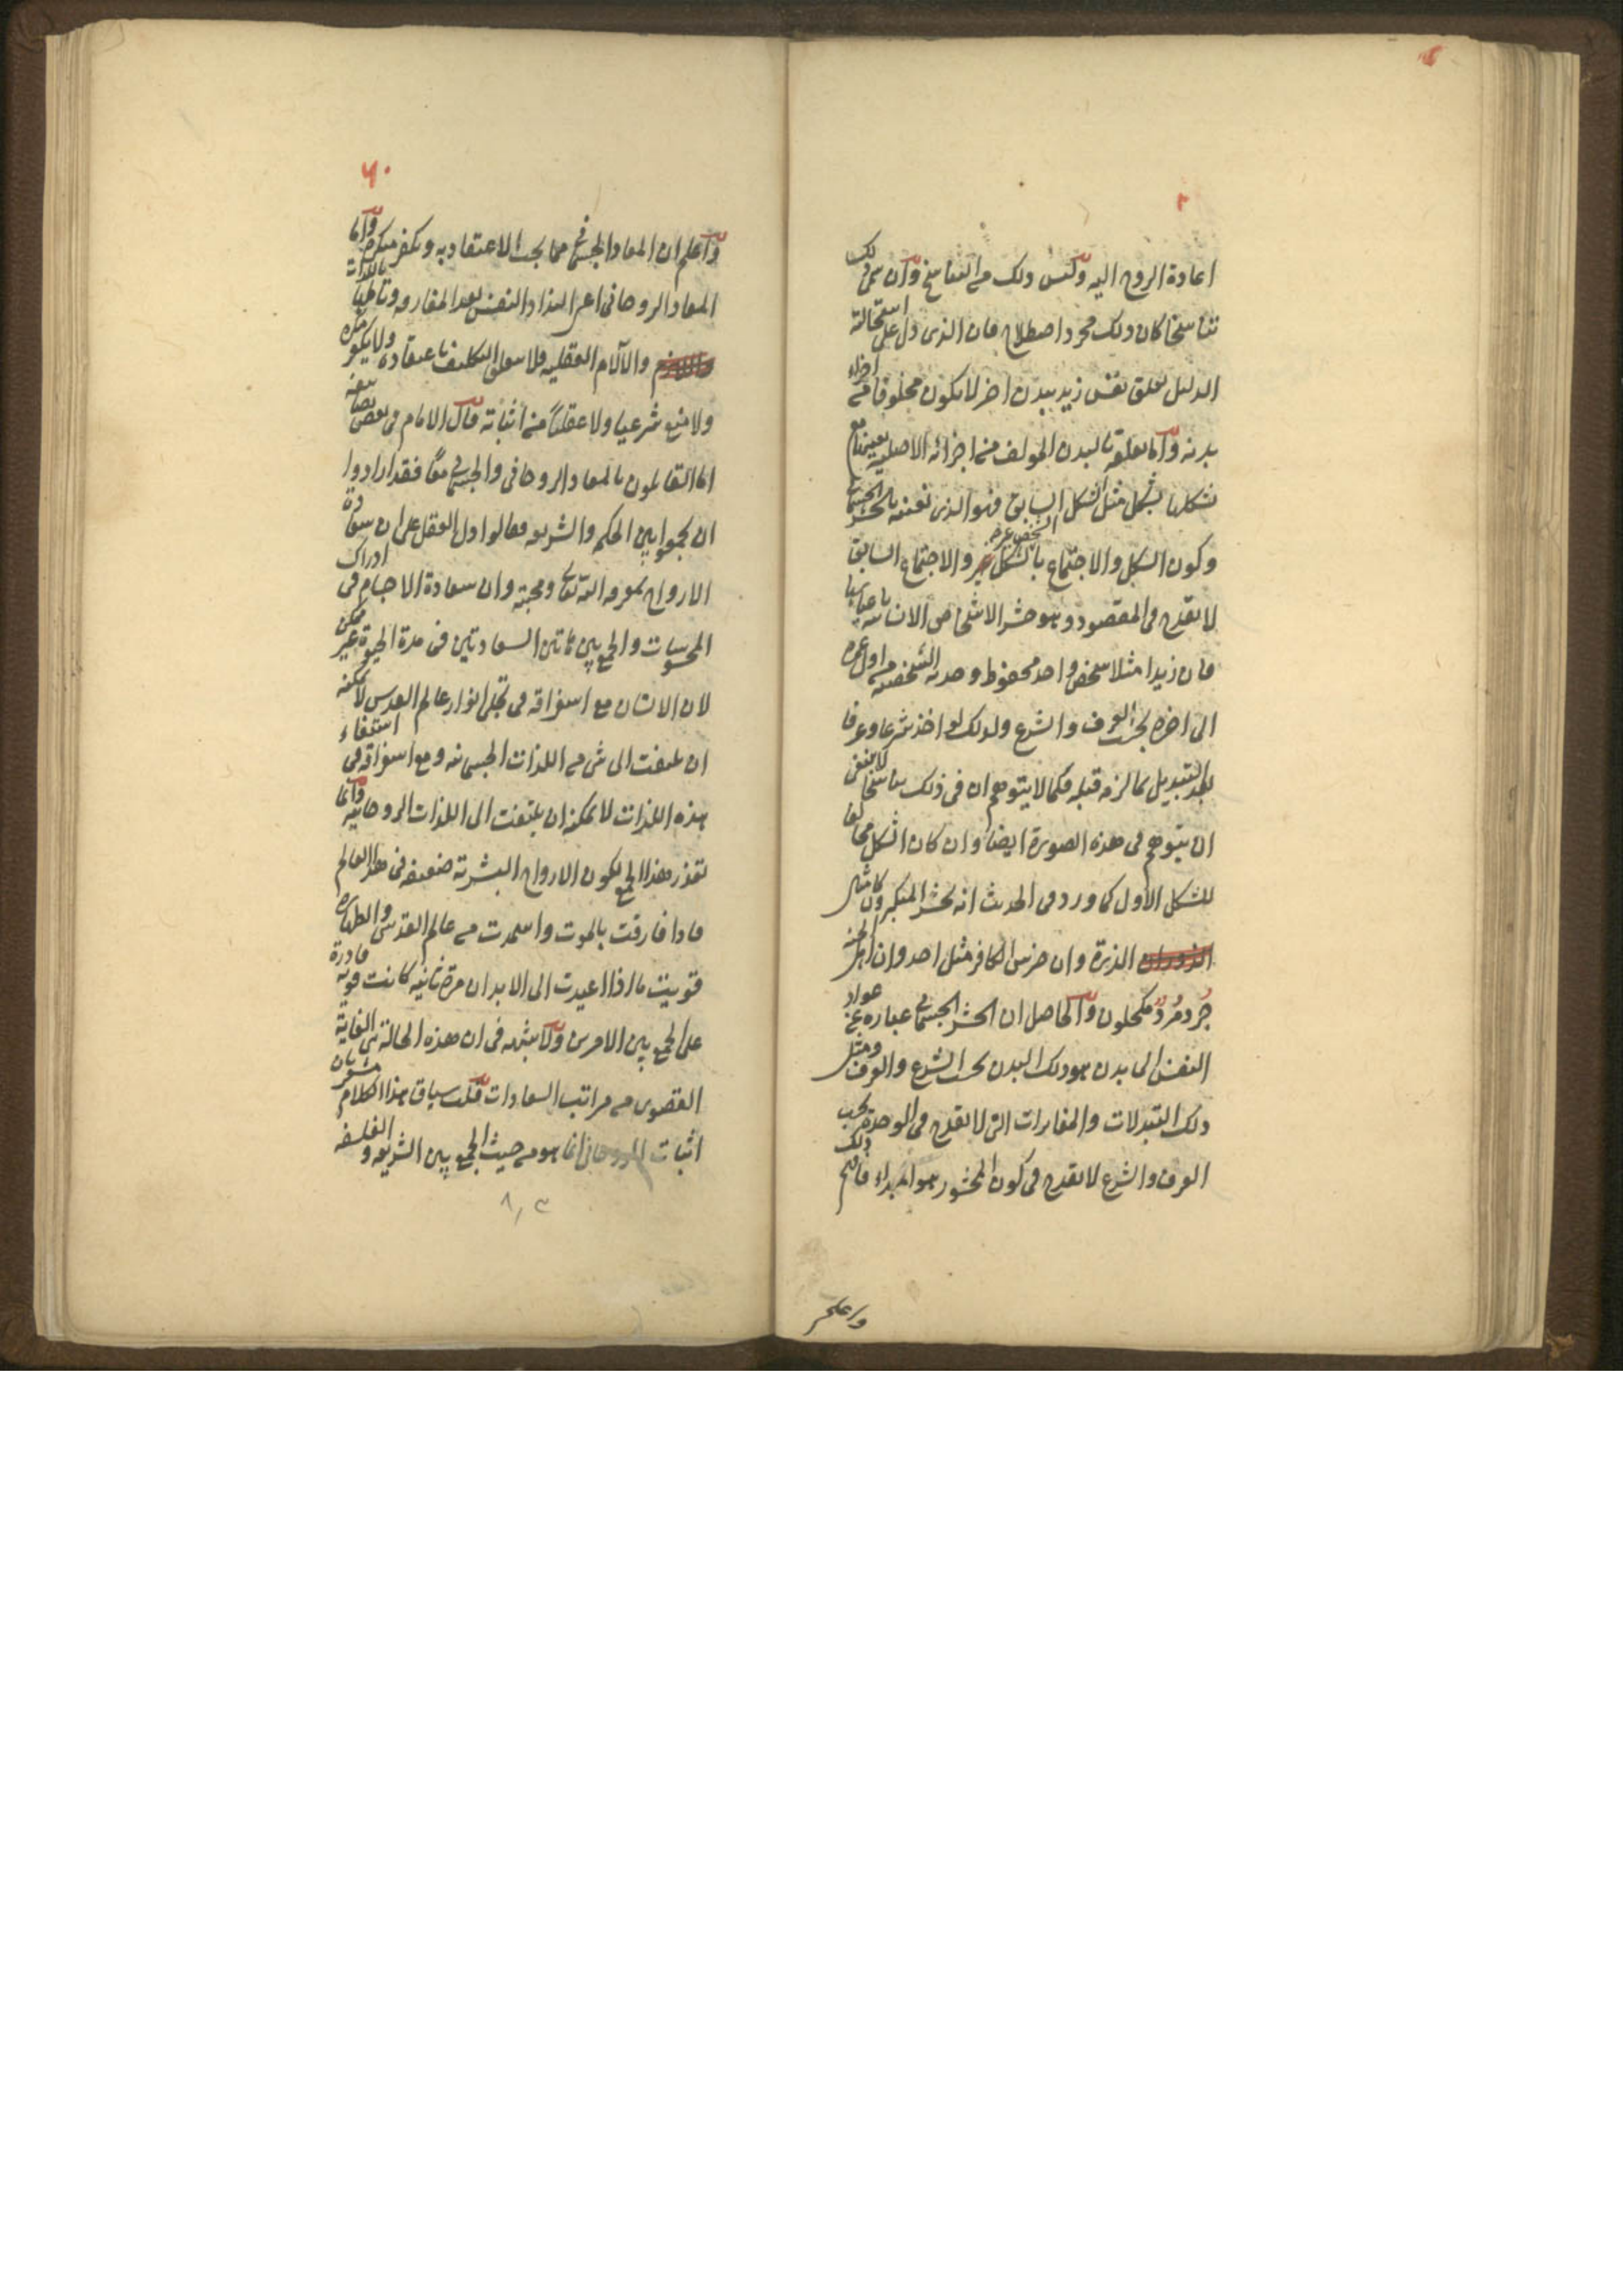 اعادة الروح اليه وليس ذلك من التناسخ وان سمى ذلك
تناسخا كان ذلك مجرد اصطلاح فان الذى دل على استحالته
الدليل تعلق نفس زيد ببدن اخر لا يكون مخلوقا من اجزاء
بدنه واما تعلقه بالبدن المولف من اجزائه الاصليه بعينها مع
تشكلها بشكل مثل الشكل السابق فهو الذى نعنيه بالحشر الجسمانى
وكون الشكل والاجتماع بالشخص غير الشكل والاجتماع السابق
لا يقدح فى المقصود وهو حشر الاشخاص الانسانيه باعيانها
فان زيدا مثلا شخص واحد محفوظ وحدته الشخصيه من اول عمره
الى اخره بحسب العرف والشرع ولذلك يواخذ شرعا وعرفا
بعد التبديل بما لزمه قبله فكما لا يتوهم ان فى ذلك تناسخا لا ينبغى
ان يتوهم فى هذه الصورة ايضا وان كان الشكل مخالفا
للشكل الاول كما ورد فى الحديث انه يحشر المتكبرون كامثال
الذرة وان ضرس الكافر مثل احد وان اهل الجنه
جُردمُردٌ مكحلون والحاصل ان الحشر الجسمانى عباره عن عود
النفس الى بدن هو ذلك البدن بحسب الشرع والعرف ومثل
ذلك التبدلات والمغايرات التى لا تقدح فى الوحدة بحسب
العرف والشرع لا تقدح فى كون المحشور هو المبداء فافهم ذلك
واعلم
٦٠
واعلم ان المعاد الجسمانى مما يجب الاعتقاد به ويكفر منكره واما
المعاد الروحانى اعنى التذاذ النفس بعد المفارقه وتالمها باللذات
والآلام العقليه فلا يتعلق التكليف باعتقاده ولا يكفر منكره
ولا منع شرعيا ولا عقليا من اثباته قال الامام فى بعض تصانيفه
اما القائلون بالمعاد الروحانى والجسمانى معا فقد ارادوا
ان يجمعوا بين الحكمه والشريعه فقالوا دل العقل على ان سعادة
الارواح بمعرفه الله تعالى ومحبته وان سعادة الاجسام فى ادراك
المحسوسات والجمع بين هاتين السعادتين فى مدة الحيوة غير ممكن
لان الانسان مع استغراقه فى تجلى انوار عالم القدس لا يمكنه
ان يلتفت الى شى من اللذات الجسمانيه ومع استغراقه فى استيفاء
هذه اللذات لا يمكنه ان يلتفت الى اللذات الروحانيه وانما
تعذر هذا الجمع لكون الارواح البشرية ضعيفه فى هذا العالم
فاذا فارقت بالموت واستمدت من عالم القدس والطهاره
قويت فاذا اعيدت الى الابدان مرة ثانيه كانت قويه قادرة
على الجمع بين الامرين ولا شبهه فى ان هذه الحالة هى الغاية
القصوى من مراتب السعادات قلت سياق هذا الكلام مشعر بان
اثبات الروحانى انما هو من حيث الجمع بين الشريعه والفلسفه